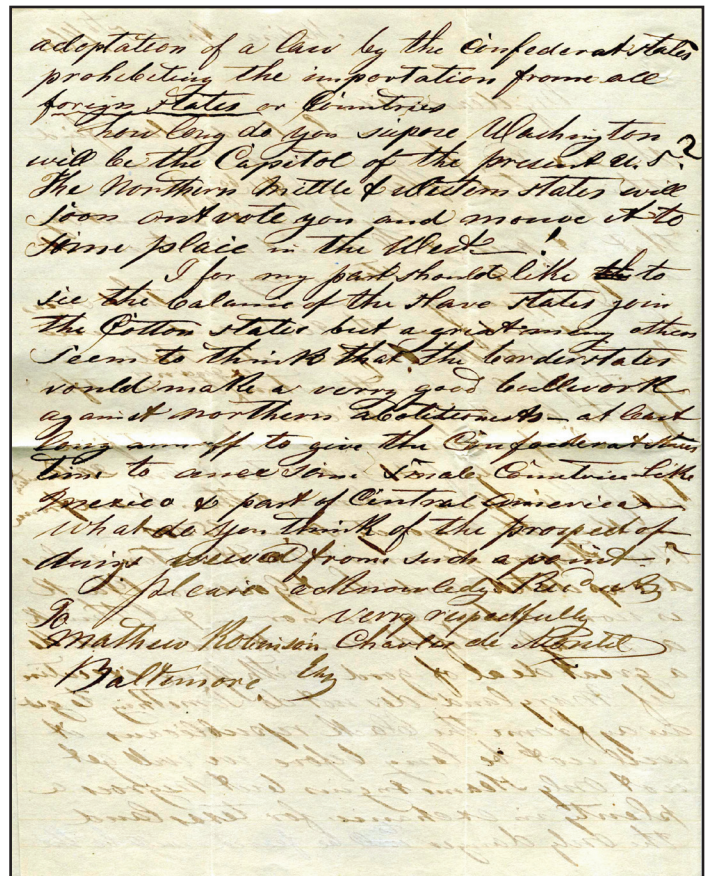 adoptation of a law by the Confederat states
prohibiting the importation frome all
forign States or Countries
how long do you supose Washington
will be the Capitol of the present U.S.?
The Northern Mittle & Western States will
soon out vote you and mouve it to
some place in the West !
I for my part should like to
see the balance of the slave states join
the Cotton states but a great many others
seem to think that the borderstates
would make a verry good bullwork
against northern abolitionests at least
long enuff to give the Confoederat states
time to anex some smale Countries like
Mexico & part of Central America
What do you think of the prospect of
dings from such a point ?
please acknowledg
To verry respectfully
Mathew Robinson Charles de Montel
Baltimore Esq